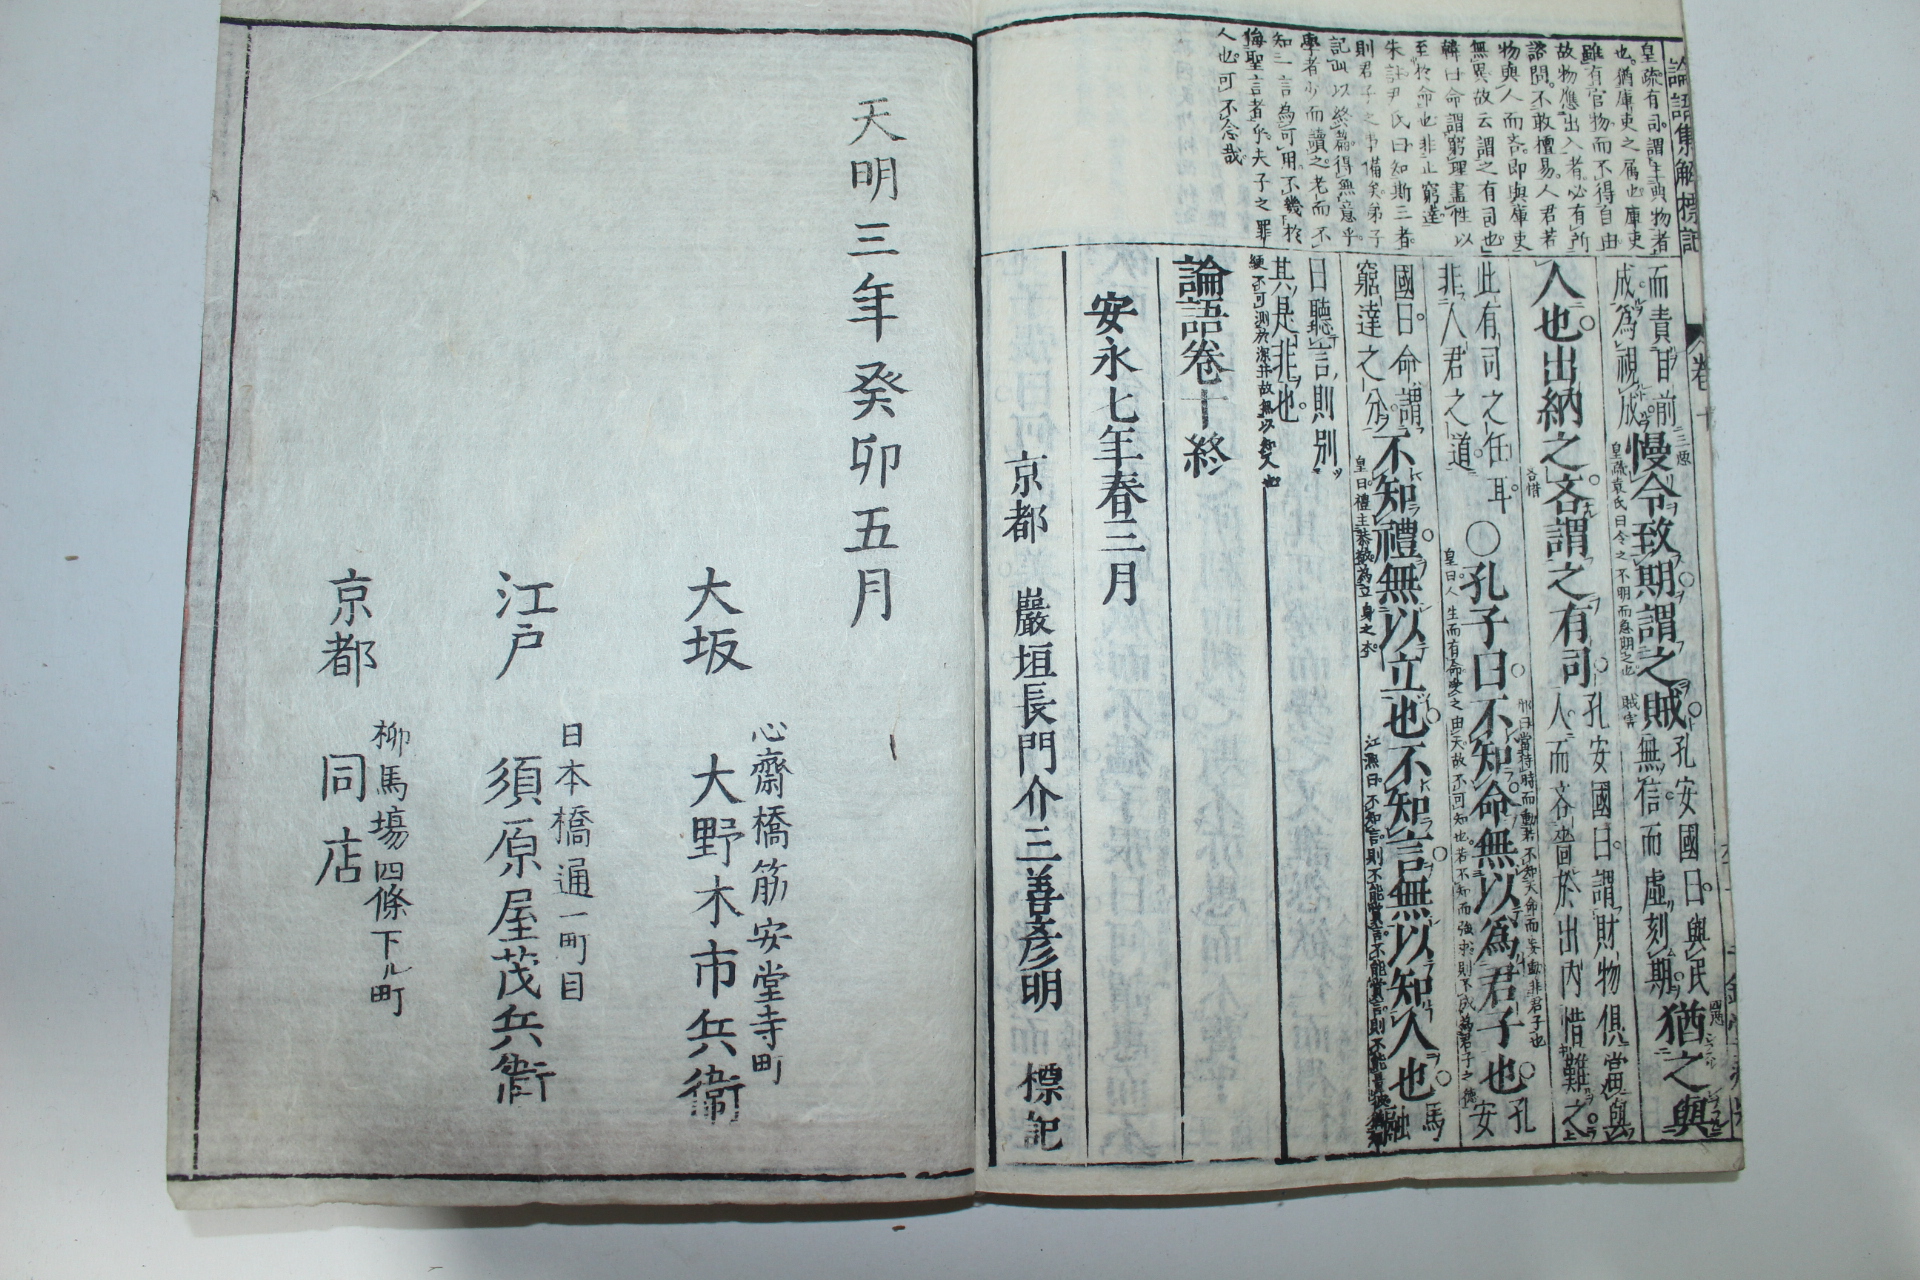 論語集解標記
皇疏有司。謂主典物者
也。猶庫吏之属也庫吏
雖有官物而不得自由
故物應出入者。必有所
諮問。不敢擅易。人君若
物與人而吝。即與庫吏
無異故云謂之有司也
韓曰命謂窮理盡性以
至於命也非止窮達
朱註尹氏曰知斯三者
則君子之事備矣弟子
記此以終篇。得無意乎
學者少而讀之。老而不
知一言為可用。不幾於
侮聖言者乎。夫子之罪
人也可不念哉
卷十
而責目前慢令致期謂之賊孔安國曰。與民
無信而虛刻期猶之與
成。為視成
人也出納之吝謂之有司孔安國曰。謂財物俱當與
人而吝嗇於出內惜難之
此有司之任耳。○孔子曰不知命無以爲君子也孔安
非人君之道
國曰。命謂
窮達之分不知禮無以立也不知言無以知人也馬融
曰聽言則別
其是非也
論語卷十終
安永七年春三月
京都 巖垣長門介三善彦明 標記
天明三年癸卯五月
大坂 心齋橋筋安堂寺町
大野木市兵衞
江戸 日本橋通一町目
須原屋茂兵衞
京都 柳馬塲四條下ル町
同店